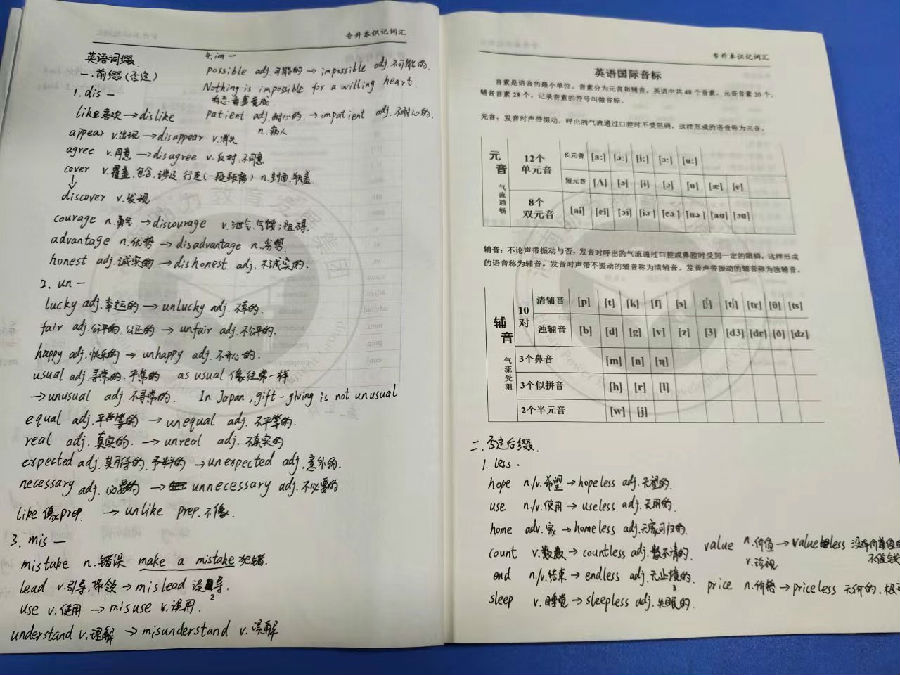 专升本识记词汇
英语词缀
一.前缀(否定)
1. dis—
like 喜欢→dislike
appear v.出现→disappear v.消失
agree v.同意→disagree v.反对,不同意
cover v.覆盖,包含,讲述,行走(一段距离) n.封面,覆盖
↓
discover v.发现
courage n.勇气→discourage v.泄气,气馁;阻碍.
advantage n.优势→disadvantage n.劣势
honest adj.诚实的→dishonest adj.不诚实的.
2. un—
lucky adj.幸运的→unlucky adj.不幸的.
fair adj.公平的,公正的→unfair adj.不公平的.
happy adj.快乐的→unhappy adj.不开心的.
usual adj.寻常的,平常的 as usual 像往常一样
→unusual adj.不寻常的. In Japan, gift-giving is not unusual
equal adj.平等的→unequal adj.不平等的.
real adj.真实的.→unreal adj.不真实的
expected adj.预料的→unexpected adj.意外的.
necessary adj.必要的→unnecessary adj.不必要的
like 像 prep.→unlike prep.不像.
3. mis—
mistake n.错误 make a mistake 犯错.
lead v.引导,带领→mislead 误导.
use v.使用→misuse v.误用.
understand v.理解→misunderstand v.误解
4. im—
possible adj.可能的→impossible adj.不可能的.
Nothing is impossible for a willing heart
有志者事竟成
patient adj.耐心的→impatient adj.不耐心的.
n.病人
专升本识记词汇
英语国际音标
音素是语音的最小单位,音素分为元音和辅音。英语中共48个音素,元音音素20个,
辅音音素28个,记录音素的符号叫做音标。
元音:发音时声带振动,呼出的气流通过口腔时不受阻碍,这样形成的语音称为元音。
元音 气流通畅
12个单元音
长元音 [ɑ:] [ɔ:] [i:] [ɜ:] [u:]
短元音 [ʌ] [ə] [i] [ɔ] [u] [æ] [e]
8个双元音 [ai] [ei] [ɔi] [iə] [eə] [uə] [au] [əu]
辅音:不论声带振动与否,发音时呼出的气流通过口腔或鼻腔时受到一定的阻碍,这样形成
的语音称为辅音。发音时声带不振动的辅音称为清辅音,发音声带振动的辅音称为浊辅音。
辅音 气流受阻
10对
清辅音 [p] [t] [k] [f] [s] [ʃ] [tʃ] [tr] [θ] [ts]
浊辅音 [b] [d] [g] [v] [z] [ʒ] [dʒ] [dr] [ð] [dz]
3个鼻音 [m] [n] [ŋ]
3个似拼音 [h] [r] [l]
2个半元音 [w] [j]
二.否定后缀.
1. less.
hope n/v.希望→hopeless adj.无望的.
use n/v.使用→useless adj.无用的.
home adv.家→homeless adj.无家可归的.
count v.数数→countless adj.数不清的.
end n/v.结束→endless adj.无止境的.
sleep v.睡觉→sleepless adj.失眠的.
value n.价值→valueless
v.珍视
price n.价格→priceless 无价的.